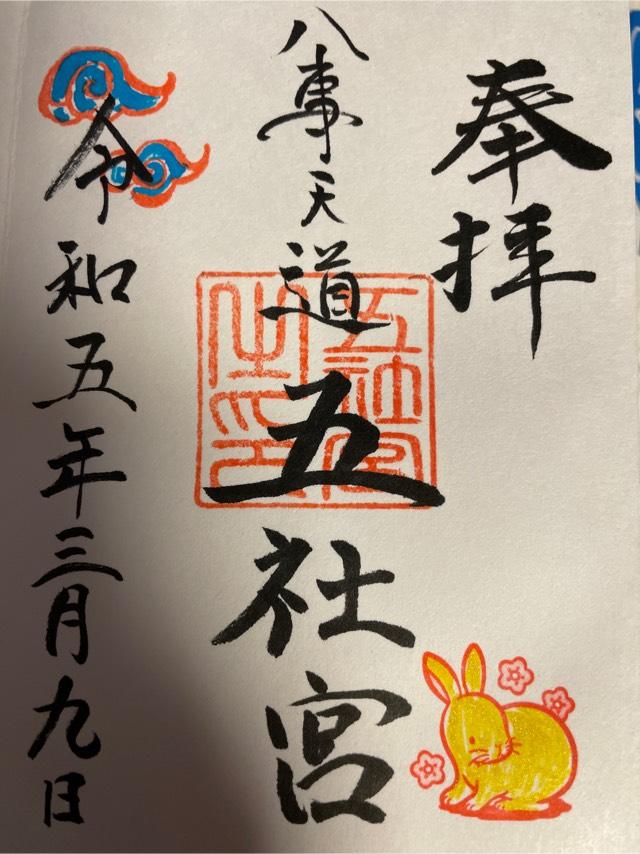 奉拝
八事天道
五社宮
五社宮之印
令和五年三月九日